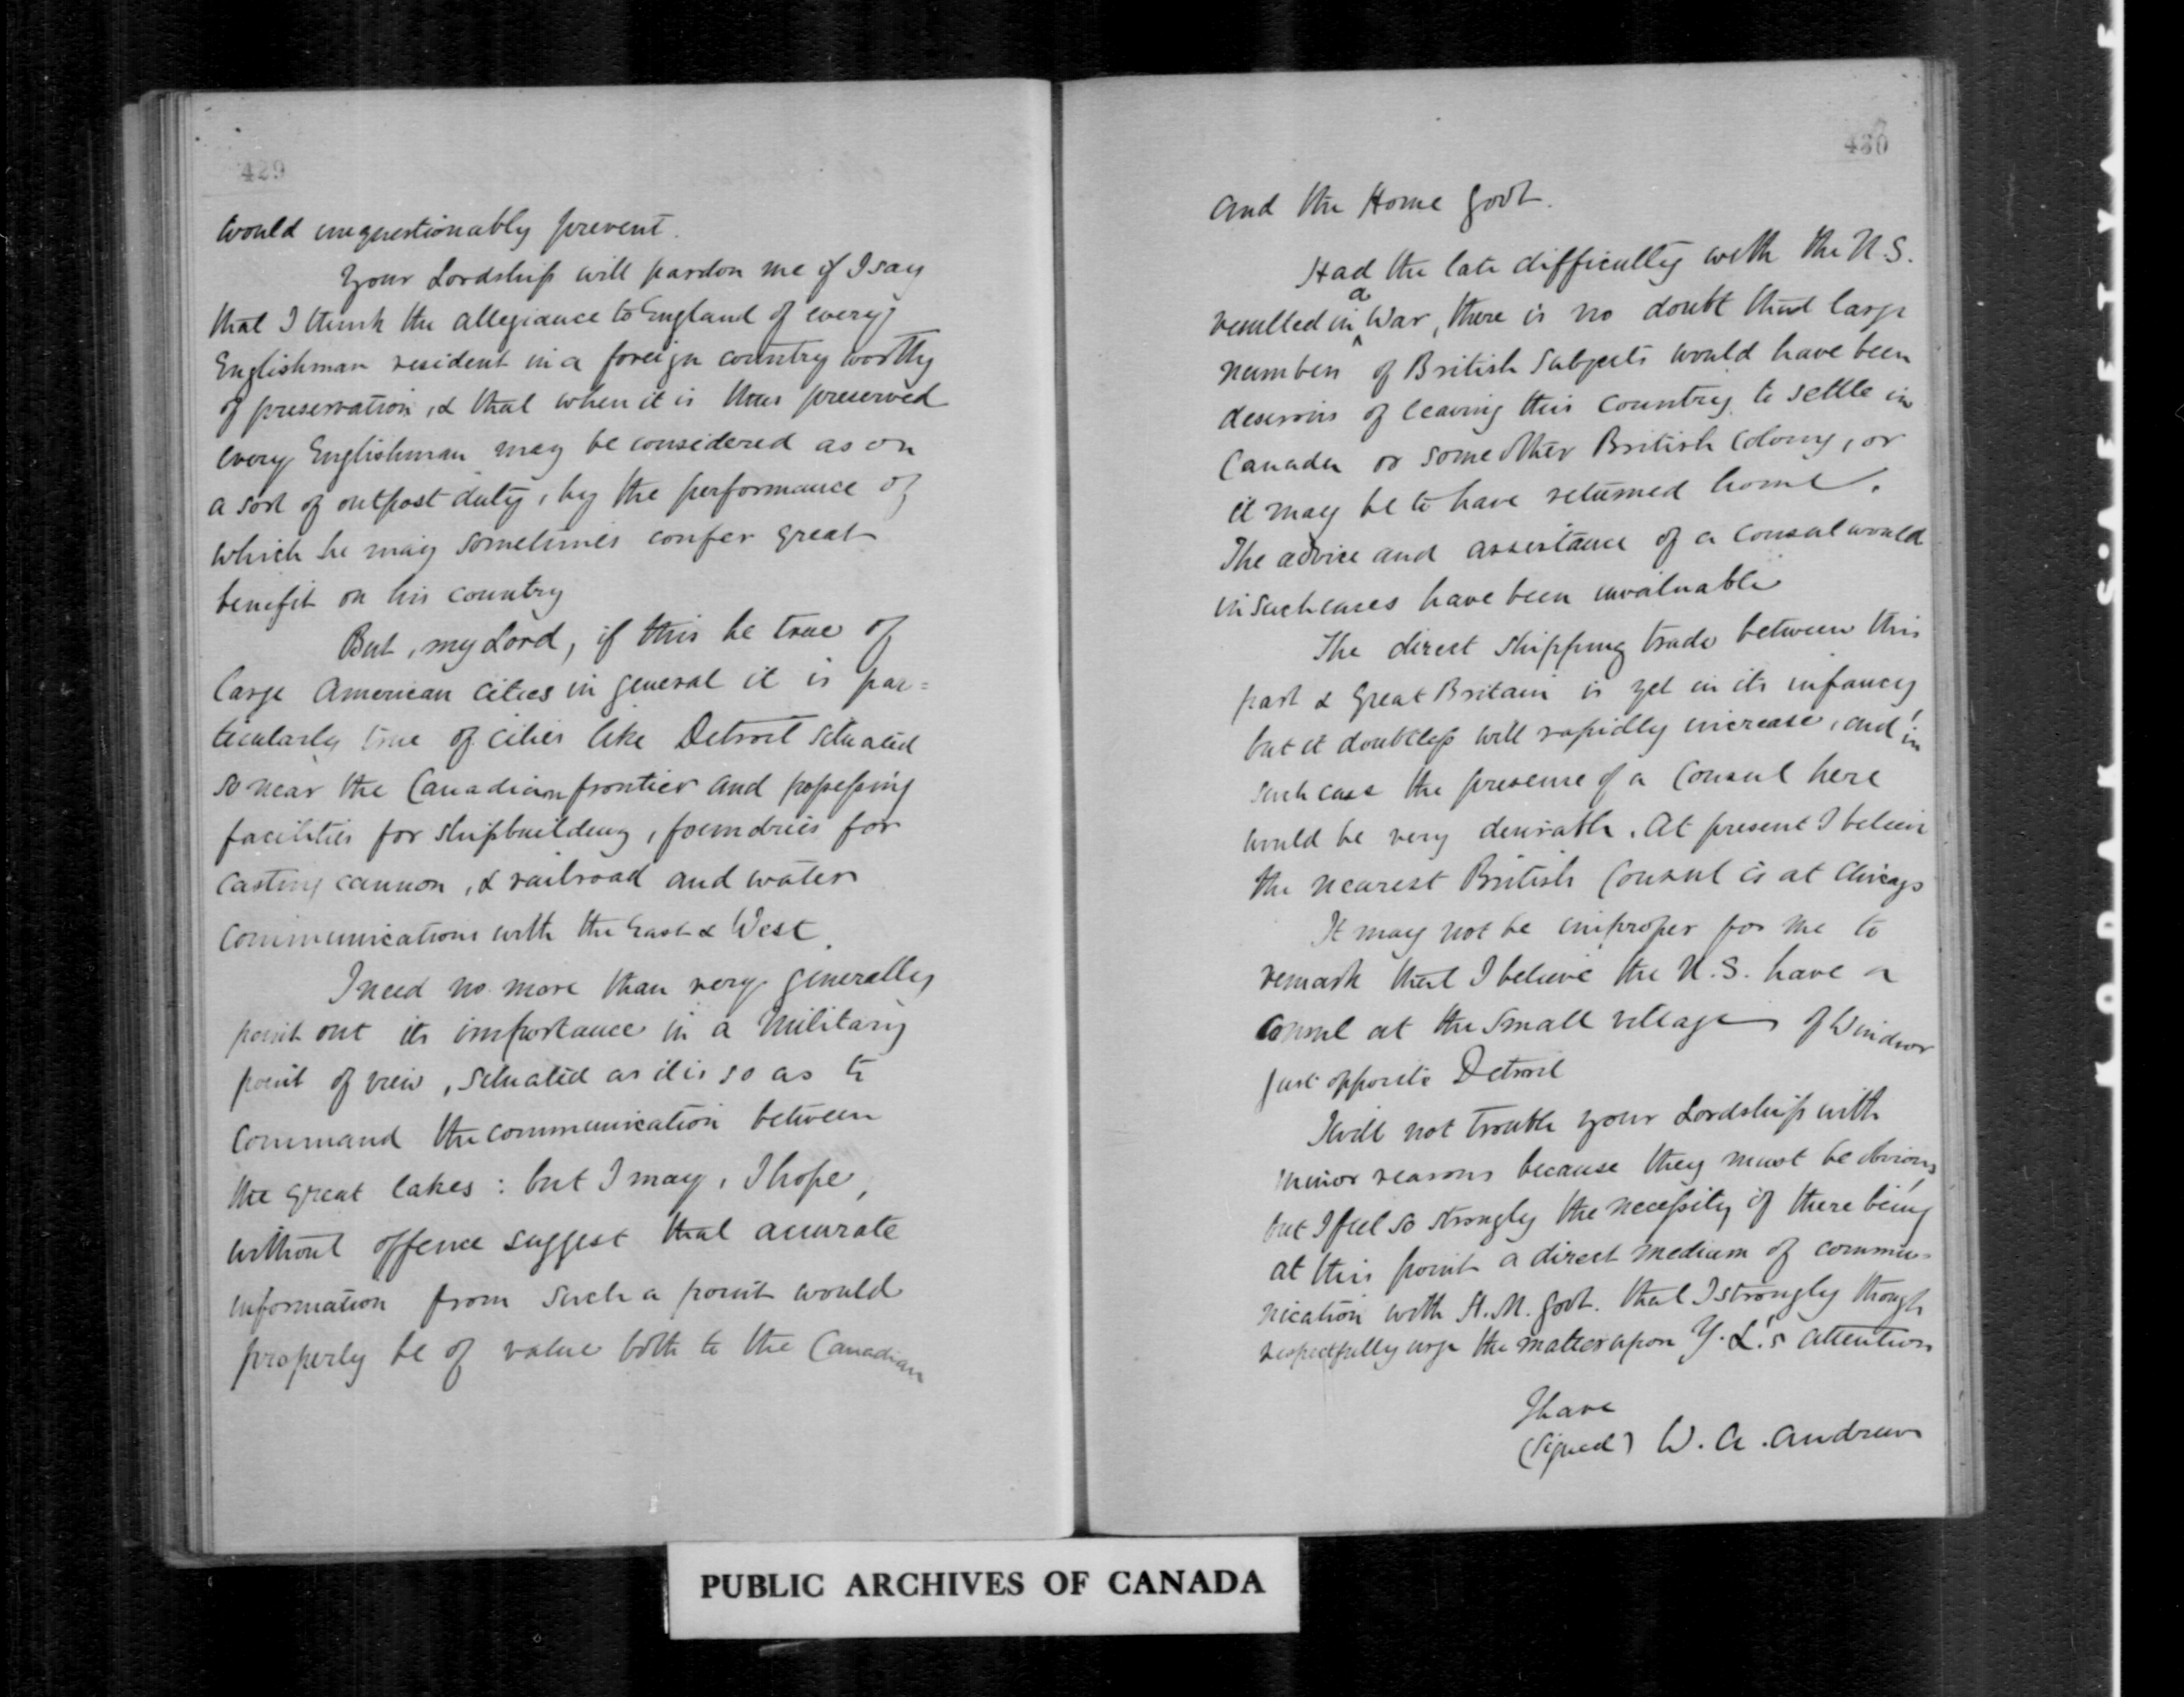 429
would unquestionably prevent.
Your Lordship will pardon me if I say
that I think the allegiance to England of every
Englishman resident in a foreign country worthy
of preservation, & that when it is thus preserved
every Englishman may be considered as on
a sort of outpost duty, by the performance of
which he may sometimes confer great
benefit on his country
But, my Lord, if this be true of
large American cities in general it is par=
ticularly true of cities like Detroit situated
so near the Canadian frontier and possessing
facilities for shipbuilding, foundries for
casting cannon, & railroad and water
communications with the East & West.
I need no more than very generally
point out its importance in a military
point of view, situated as it is so as to
command the communication between
the great lakes: but I may, I hope,
without offence suggest that accurate
information from such a point would
properly be of value both to the Canadian
430
and the Home Govt.
Had the late difficulty with the U.S.
resulted in a War, there is no doubt that large
numbers of British Subjects would have been
desirous of leaving this country to settle in
Canada or some other British Colony, or
it may be to have returned home.
The advice and assistance of a Consul would
in such cases have been invaluable
The direct shipping trade between this
part & Great Britain is yet in its infancy
but it doubtless will rapidly increase, and in
such case the presence of a Consul here
would be very desirable. At present I believe
the nearest British Consul is at Chicago
It may not be improper for me to
remark that I believe the U.S. have a
Consul at the small village of Windsor
just opposite Detroit
I will not trouble your Lordship with
minor reasons because they must be obvious,
but I feel so strongly the necessity of there being
at this point a direct medium of commu=
nication with H.M. Govt. that I strongly though
respectfully urge the matter upon Y. L.'s attention
I have
(Signed) W. A. Andrews
PUBLIC ARCHIVES OF CANADA